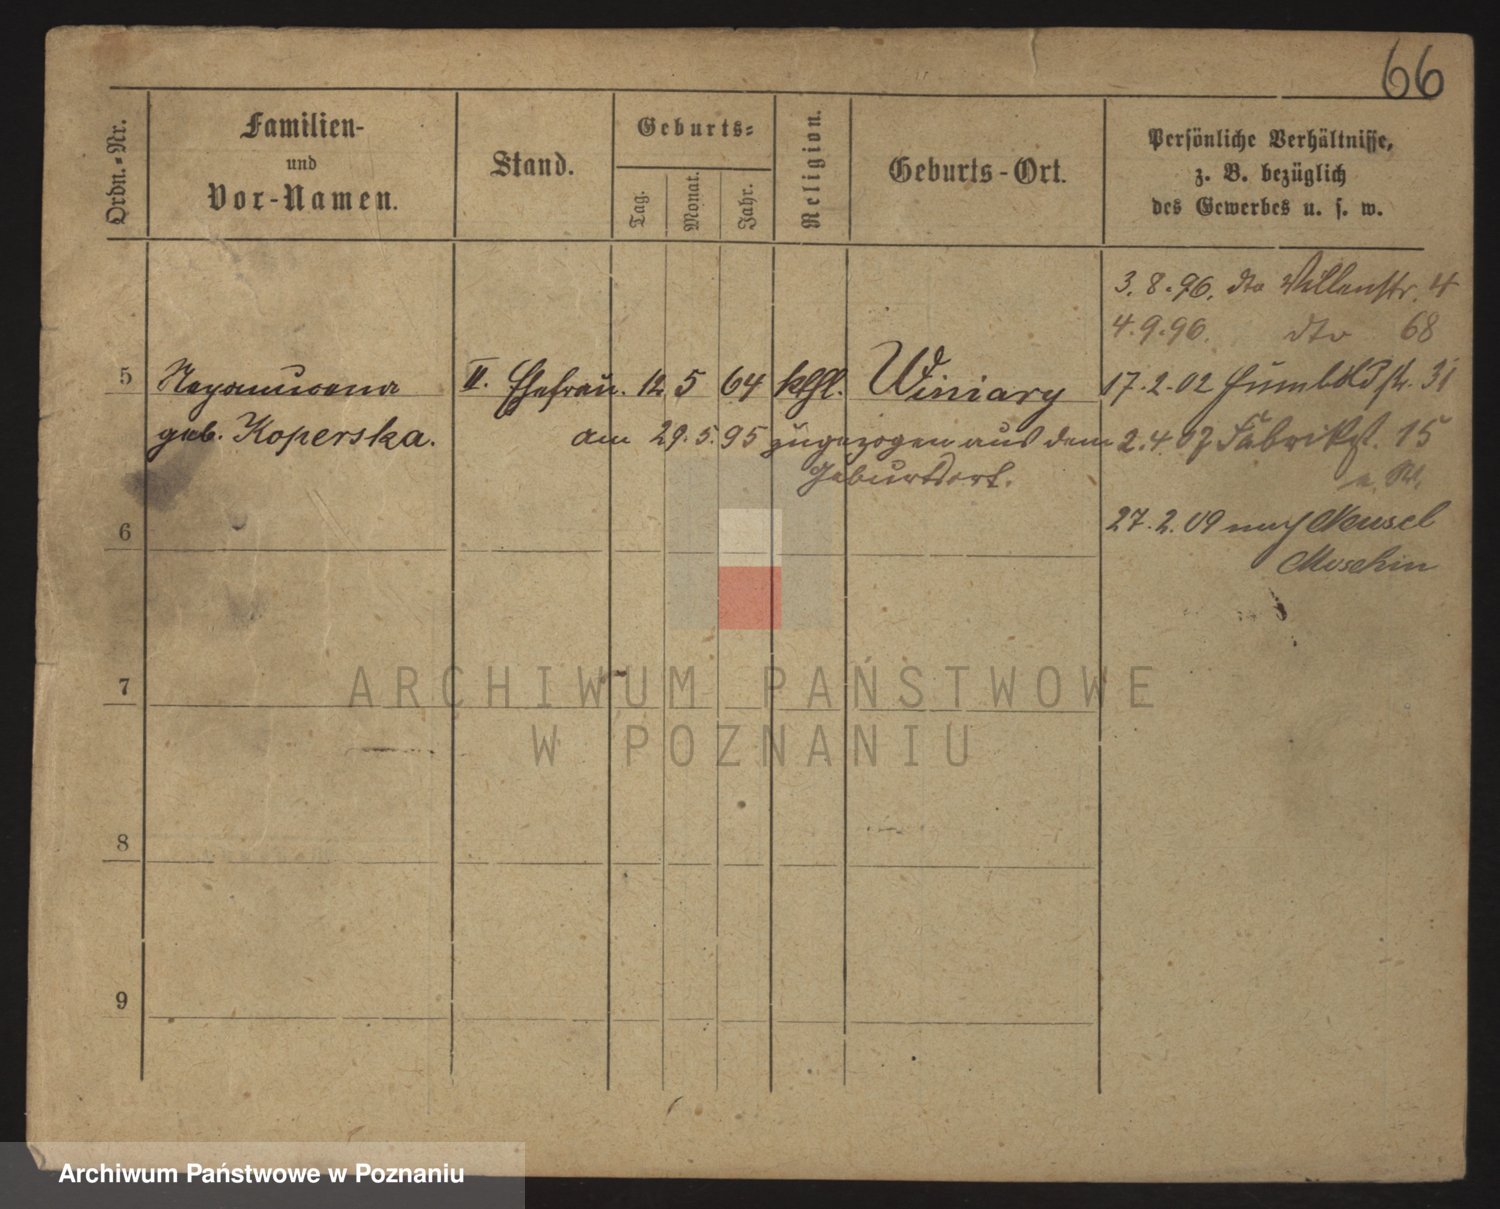 66
Ordn.-Nr.
Familien-
und
Vor-Namen.
Stand.
Geburts-
Tag.
Monat.
Jahr.
Religion.
Geburts-Ort.
Persönliche Verhältnisse,
z. B. bezüglich
des Gewerbes u. s. w.
3. 8. 96. dto Villenstr. 4
4. 9. 96. dto 68
5 Nepomucena II. Ehefrau. 12 5 64 kthl. Winiary 17. 2. 02 Humboldstr. 31
geb. Koperska. am 29. 5. 95 zugezogen aus dem 2. 4. 07 Fabrikst. 15
Geburtsort.
6 27. 2. 09 nach
Moschin
7
8
9
ARCHIWUM PAŃSTWOWE
W POZNANIU
Archiwum Państwowe w Poznaniu